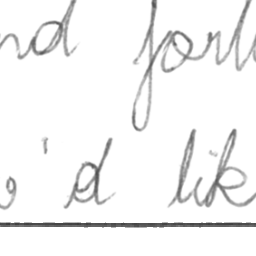 nd forl
o'd lik